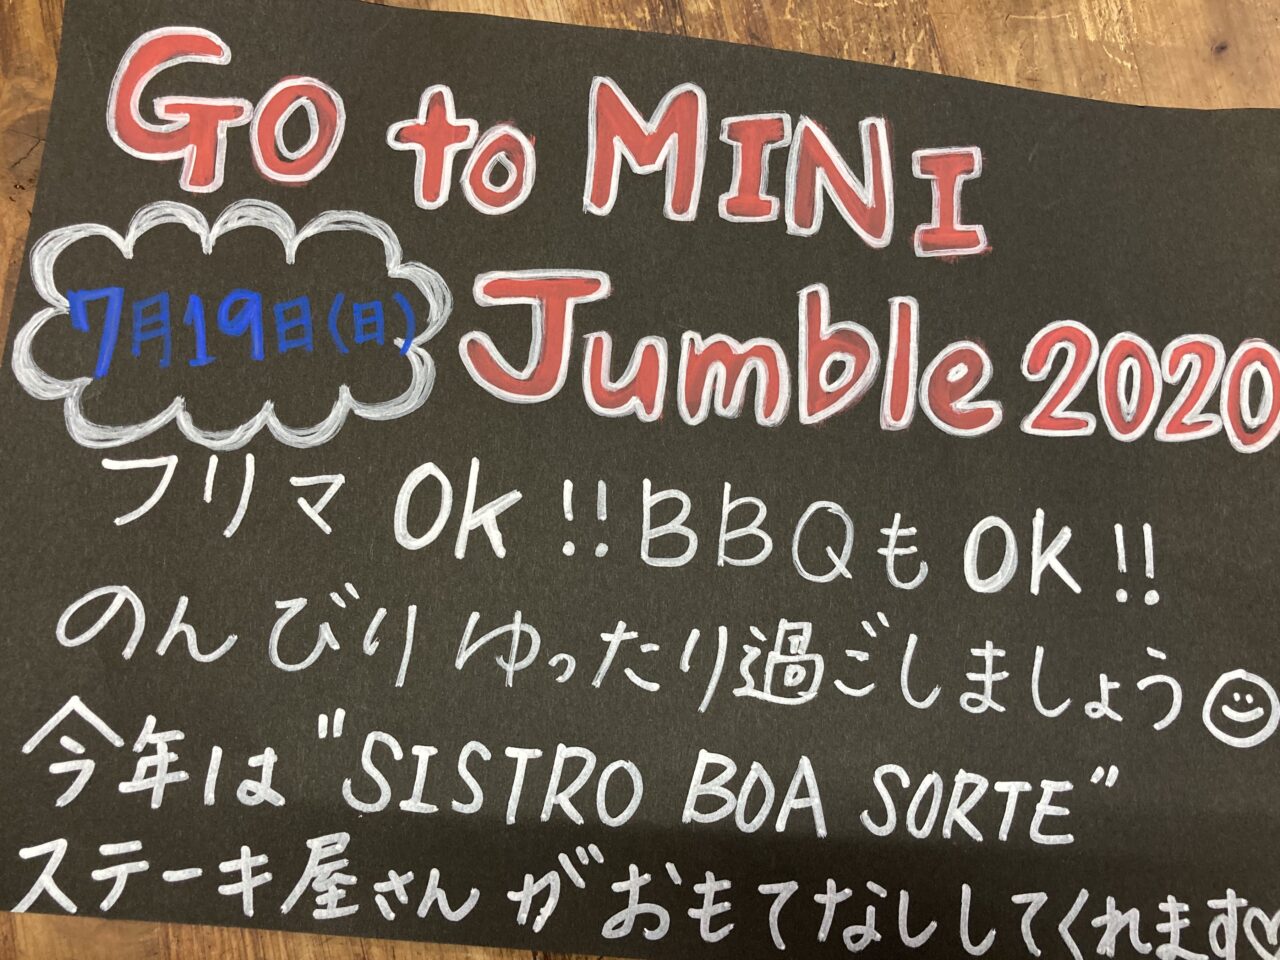 Go to MINI
7月19日(日)
Jumble 2020
フリマ OK!! BBQも OK!!
のんびり ゆったり過ごしましょう
今年は "SISTRO BOA SORTE"
ステーキ屋さんが おもてなししてくれます♡